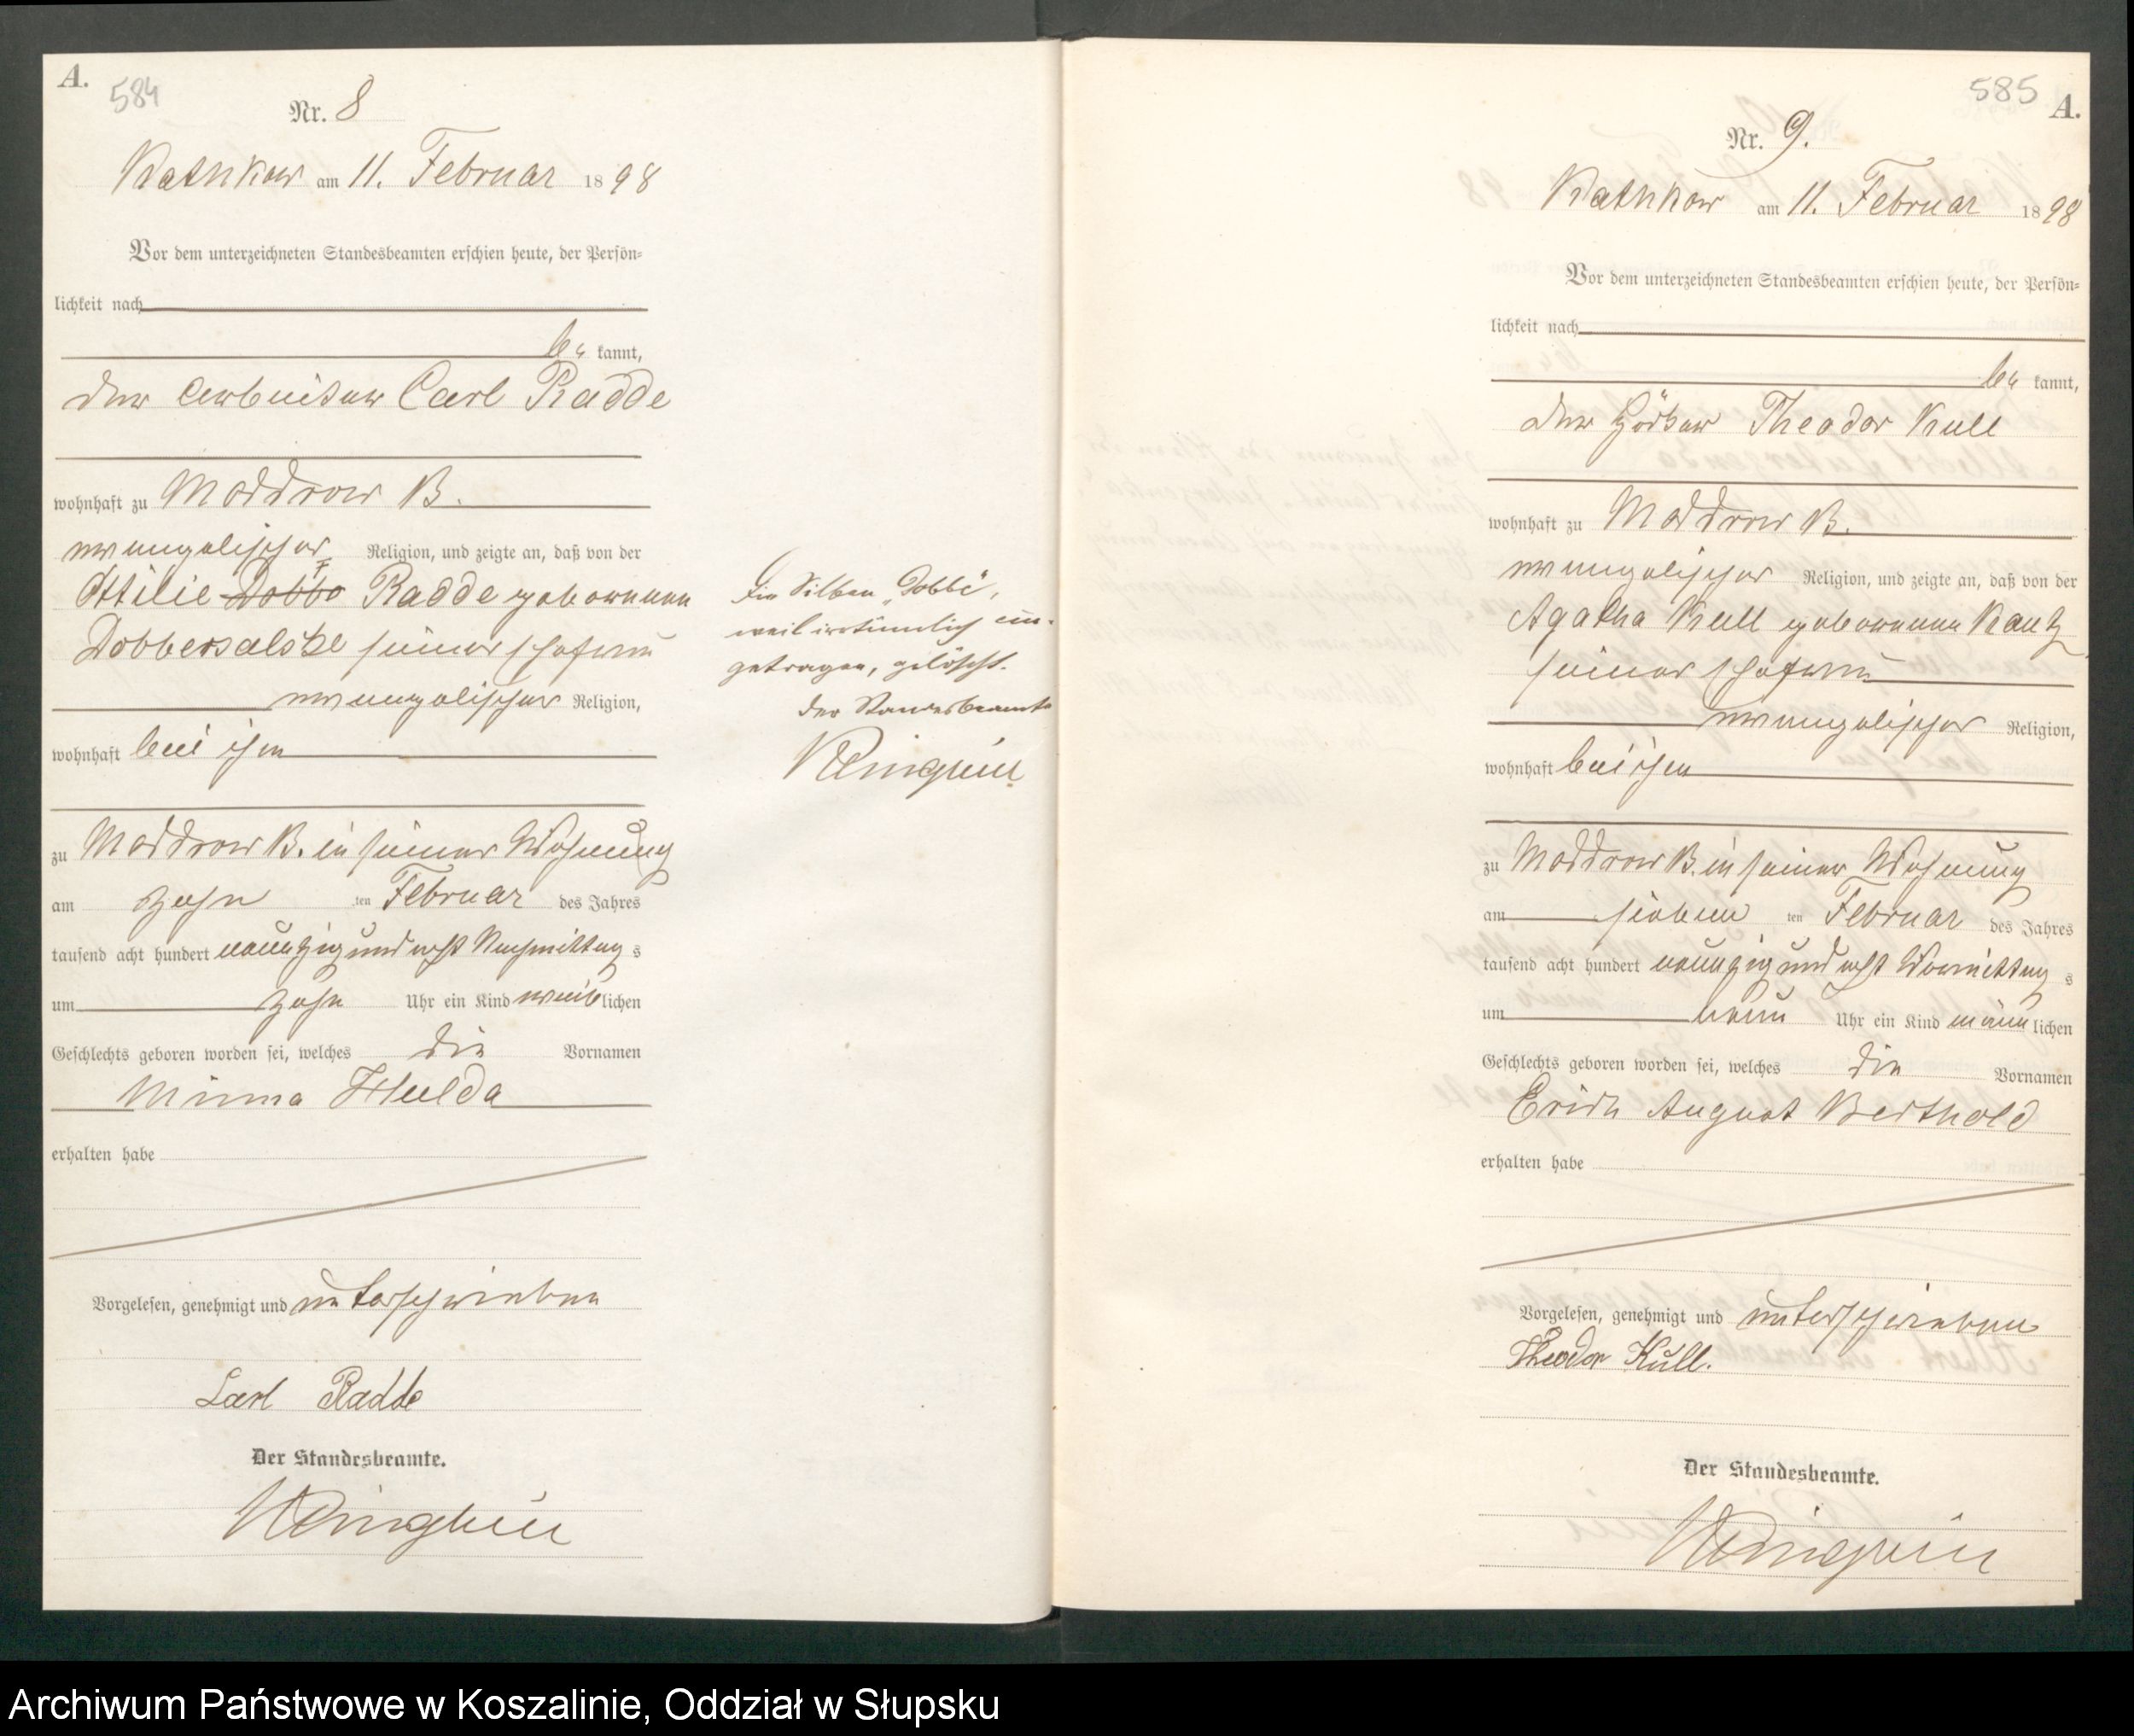 A.
584
Nr. 8
Rathkow am 11. Februar 1898
Vor dem unterzeichneten Standesbeamten erschien heute, der Persön-
lichkeit nach
be kannt,
der Arbeiter Carl Radde
wohnhaft zu Moddrow B.
evangelischer Religion, und zeigte an, daß von der
Ottilie Dobbe Radde geborenen
Dobbersalske seiner Ehefrau
evangelischer Religion,
wohnhaft bei ihm
zu Moddrow B. in seiner Wohnung
am zehn ten Februar des Jahres
tausend acht hundert neunzig und acht Nachmittag s
um zehn Uhr ein Kind weiblichen
Geschlechts geboren worden sei, welches die Vornamen
Minna Hulda
erhalten habe
Vorgelesen, genehmigt und unterschrieben
Carl Radde
Der Standesbeamte.
Die Silben „Dobbe",
weil irrtümlich ein-
getragen, gelöscht.
Der Standesbeamte
585
A.
Nr. 9.
Rathkow am 11. Februar 1898
Vor dem unterzeichneten Standesbeamten erschien heute, der Persön-
lichkeit nach
be kannt,
der Theodor Kull
wohnhaft zu Moddrow B.
evangelischer Religion, und zeigte an, daß von der
Agatha Kull geborenen Kautz
seiner Ehefrau
evangelischer Religion,
wohnhaft bei ihm
zu Moddrow B. in seiner Wohnung
am sieben ten Februar des Jahres
tausend acht hundert neunzig und acht Vormittag s
um neun Uhr ein Kind männlichen
Geschlechts geboren worden sei, welches die Vornamen
Erich August Berthold
erhalten habe
Vorgelesen, genehmigt und unterschrieben
Theodor Kull.
Der Standesbeamte.
Archiwum Państwowe w Koszalinie, Oddział w Słupsku